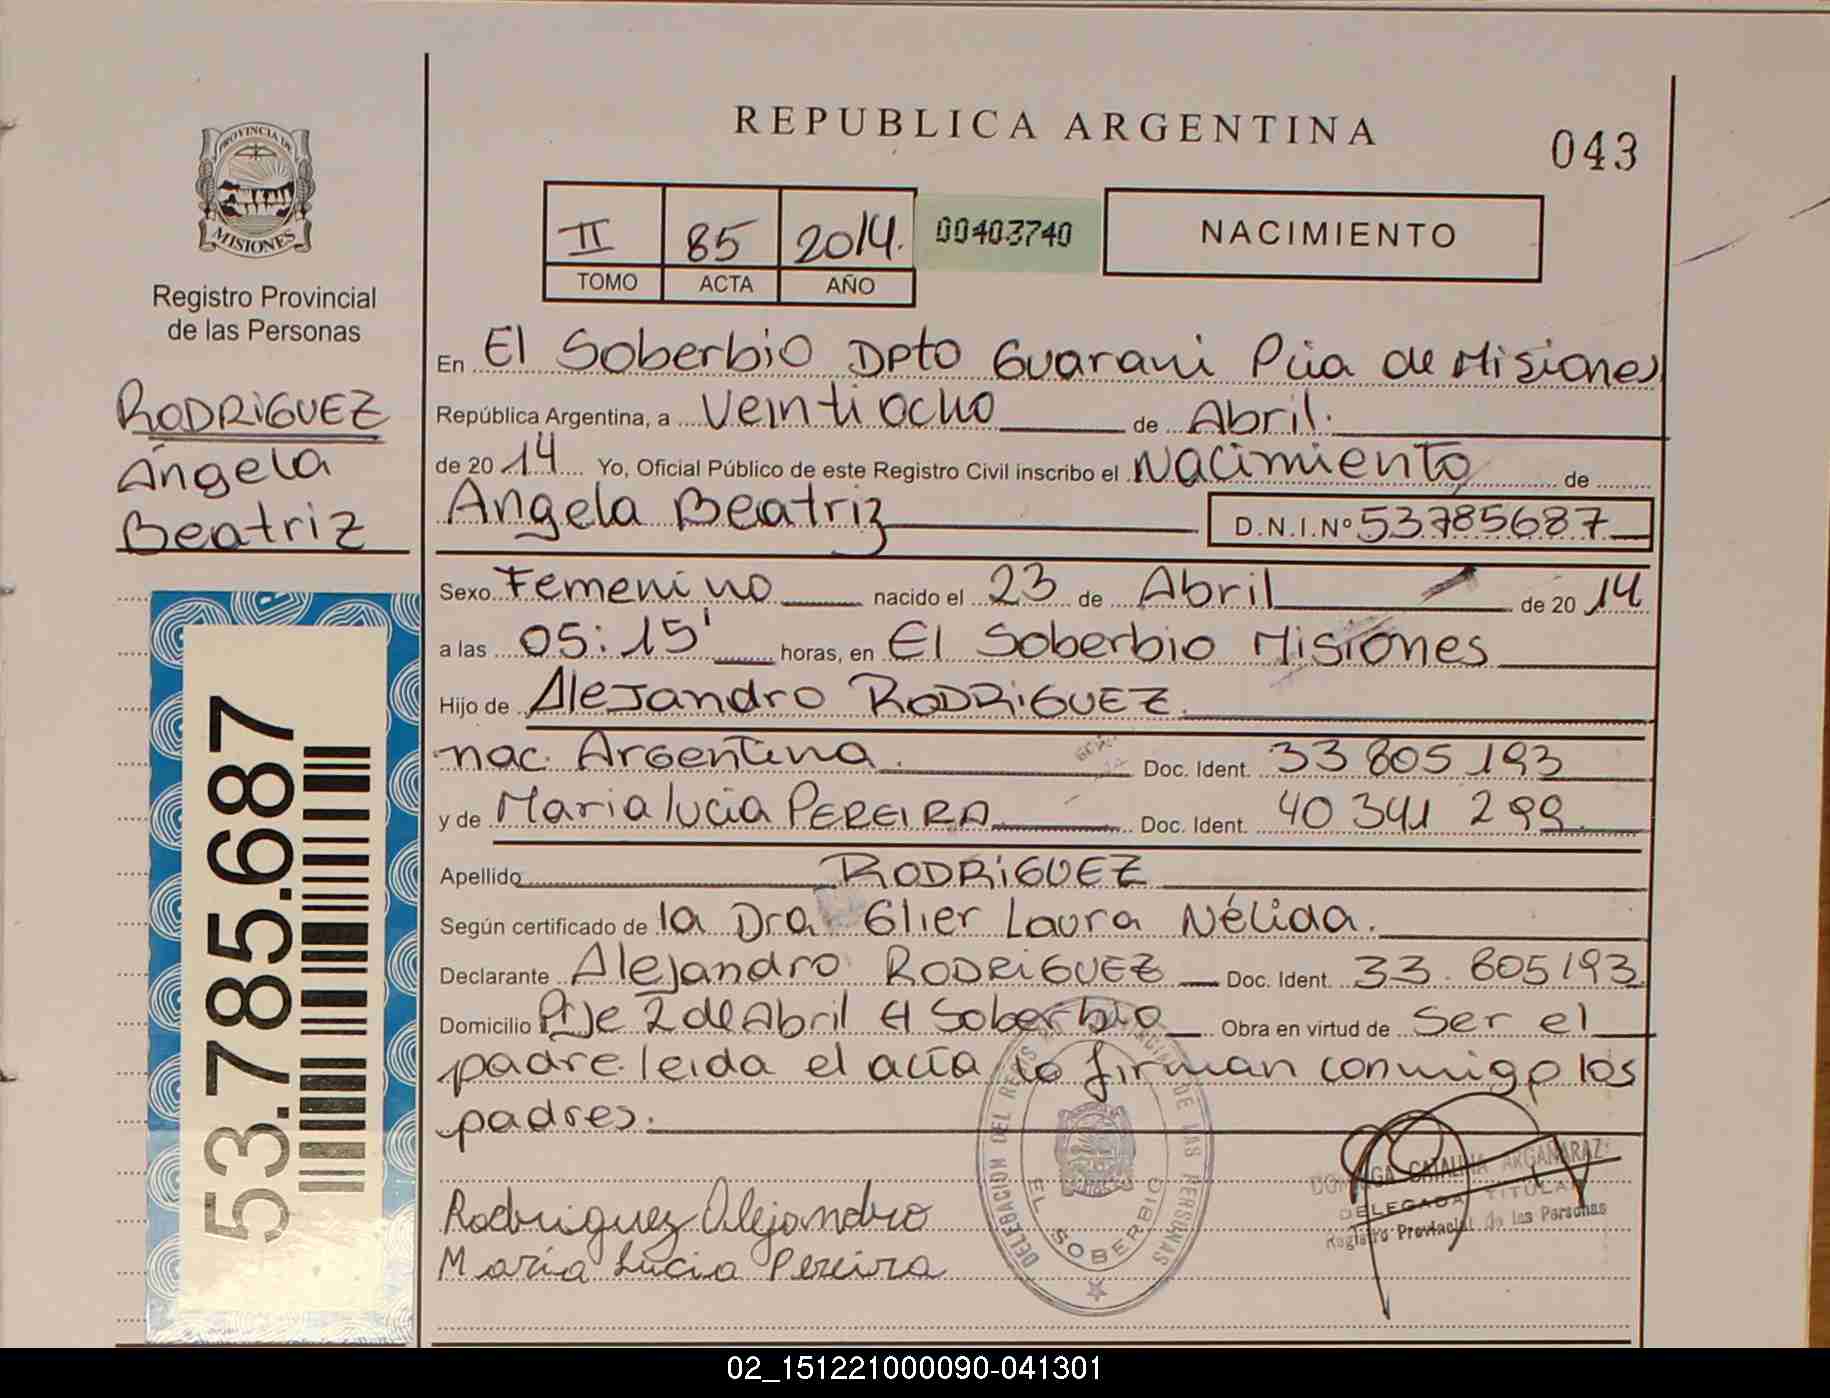 REPUBLICA ARGENTINA
043
PROVINCIA DE
MISIONES
Registro Provincial
de las Personas
RODRIGUEZ
Ángela
Beatriz
53.785.687
II 85 2014. 00403740 NACIMIENTO
TOMO ACTA AÑO
En El Soberbio Dpto Guarani Pcia de Misiones
República Argentina, a Veintiocho de Abril.
de 20 14 Yo, Oficial Público de este Registro Civil inscribo el Nacimiento de
Angela Beatriz D.N.I.Nº 53785687
Sexo Femenino nacido el 23 de Abril de 20 14
a las 05:15' horas, en El Soberbio Misiones
Hijo de Alejandro RODRIGUEZ
nac. Argentina. Doc. Ident. 33 805 193
y de Maria lucia PEREIRA Doc. Ident. 40 341 299
Apellido RODRIGUEZ
Según certificado de la Dra Glier Laura Nélida.
Declarante Alejandro RODRIGUEZ Doc. Ident. 33.805193
Domicilio Pje 2 de Abril El Soberbio Obra en virtud de Ser el
padre. leida el acta lo firman conmigo los
padres.
Rodriguez Alejandro
Maria Lucia Pereira
DELEGACION DEL REGIS PROVINCIAL DE LAS PERSONAS
EL SOBERBIO
CATALINA ARGAÑARAZ
DELEGADA TITULAR
Registro Provincial de las Personas
02_151221000090-041301